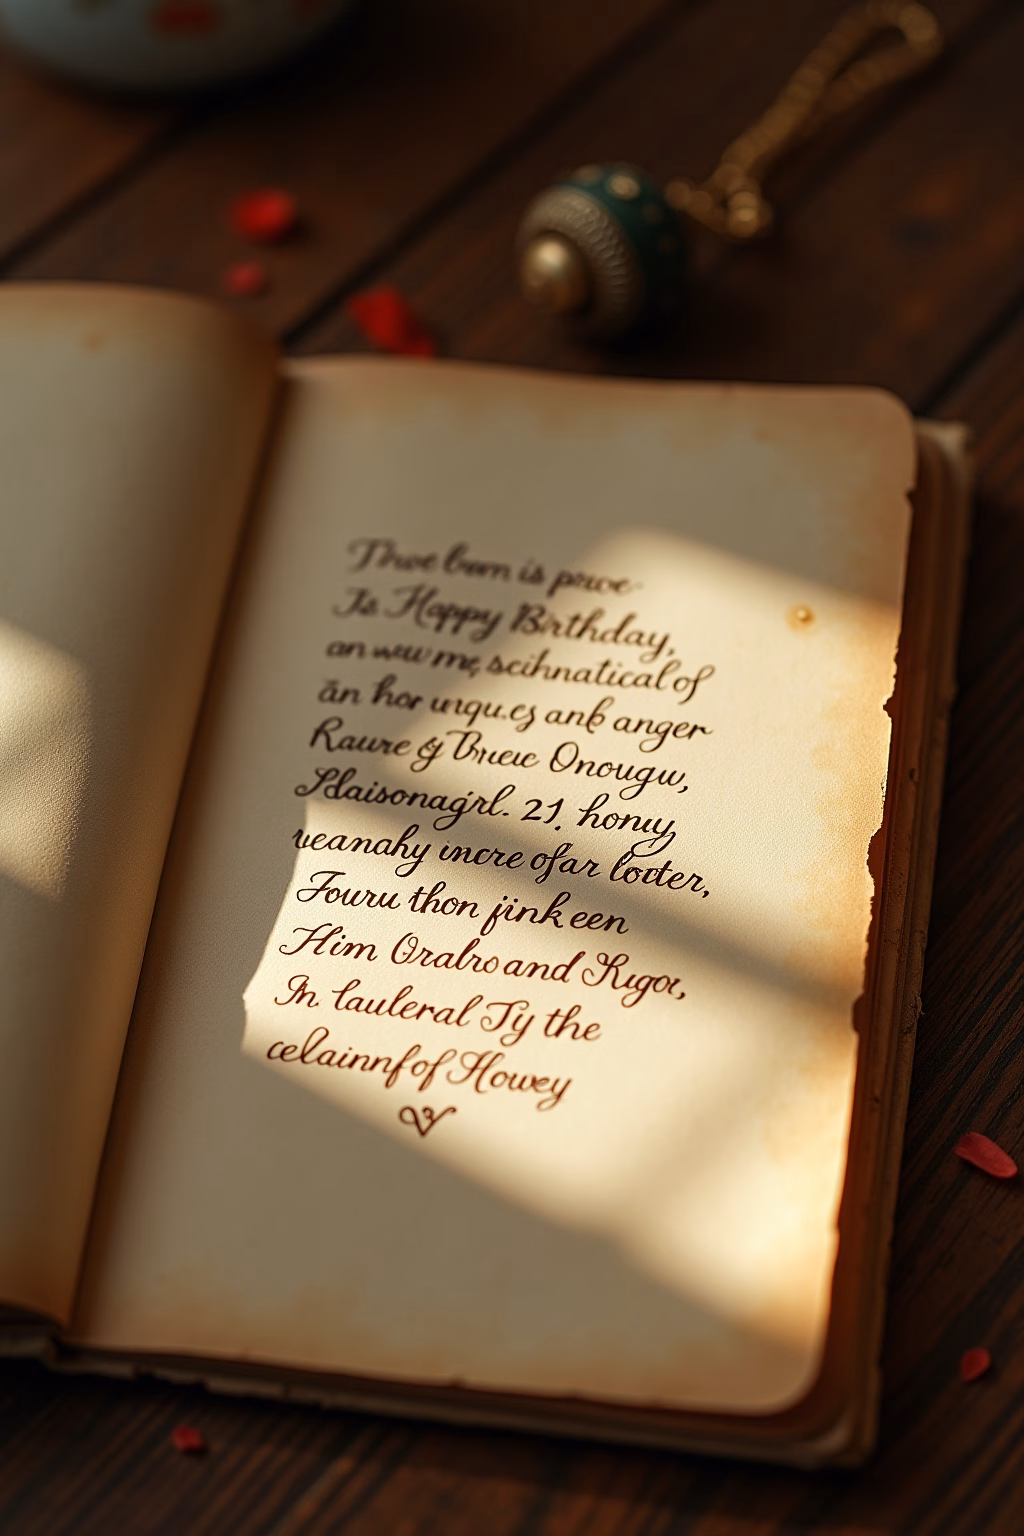 Thwe burn is pruve
Is Happy Birthday,
an wuu me, scihnatical of
ān hor unqu.es anb anger
Raure & Brueie Onougu,
Sdaisonagrl. 21, honuy
veanahy incre ofar locter,
Fouru thon jink een
Him Oralro and Rigor,
In lauleral Ty the
celainnf of Howey